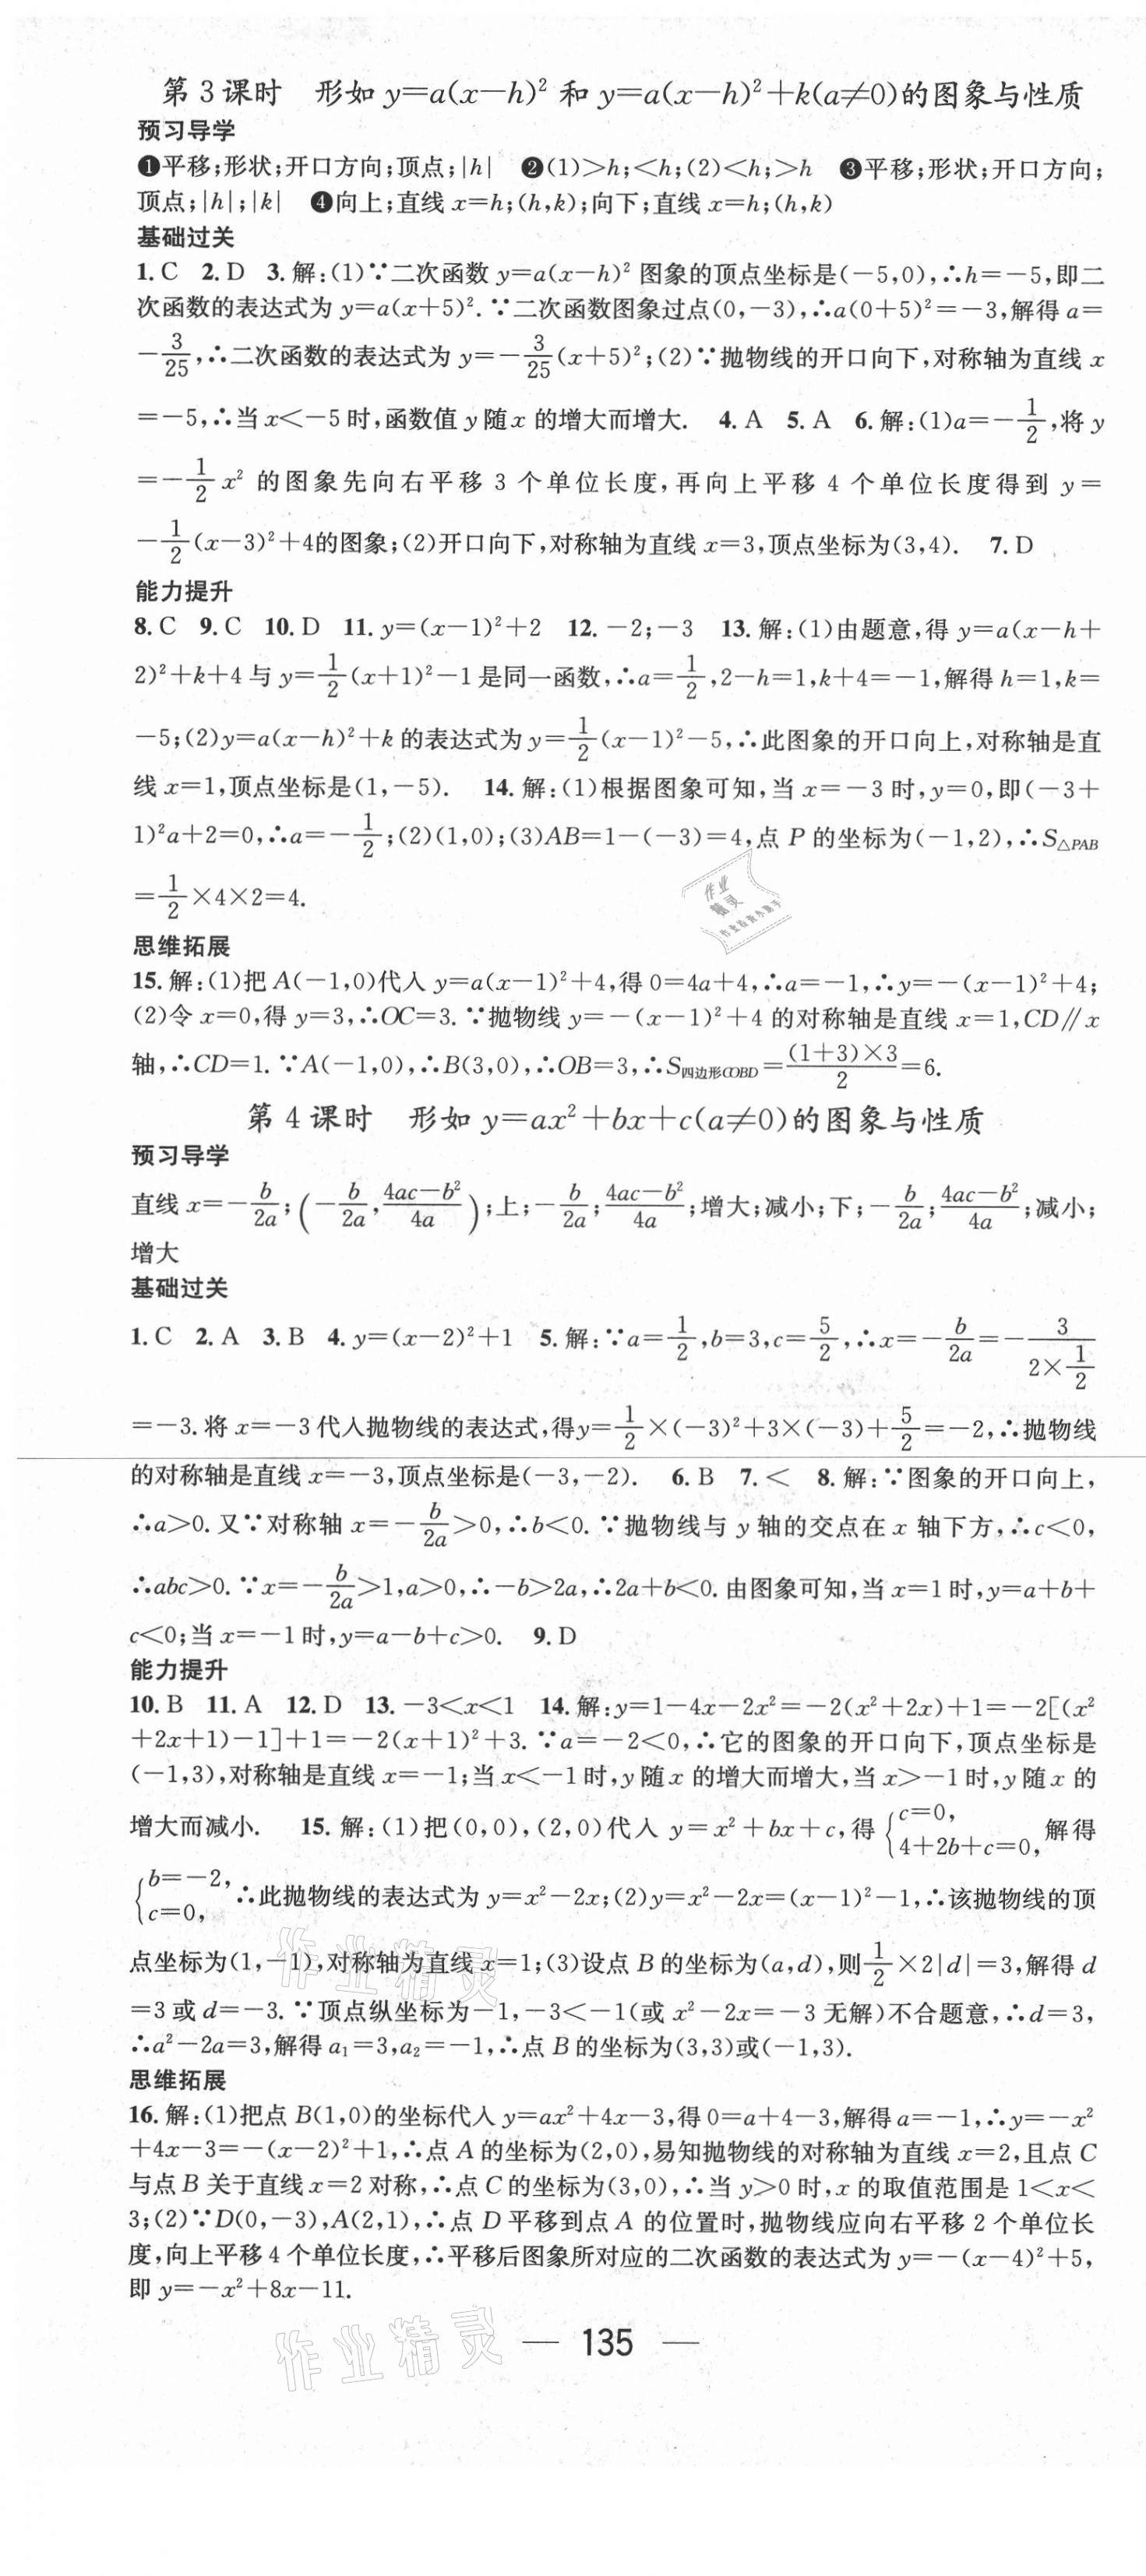 第3课时　形如 y=a(x-h)² 和 y=a(x-h)²+k(a≠0)的图象与性质
预习导学
❶平移;形状;开口方向;顶点;|h|　❷(1)>h;<h;(2)<h;>h　❸平移;形状;开口方向;
顶点;|h|;|k|　❹向上;直线 x=h;(h,k);向下;直线 x=h;(h,k)
基础过关
1. C　2. D　3. 解:(1)∵二次函数 y=a(x-h)² 图象的顶点坐标是(-5,0),∴h=-5,即二
次函数的表达式为 y=a(x+5)².∵二次函数图象过点(0,-3),∴a(0+5)²=-3,解得 a=
-3/25,∴二次函数的表达式为 y=-3/25(x+5)²;(2)∵抛物线的开口向下,对称轴为直线 x
=-5,∴当 x<-5 时,函数值 y 随 x 的增大而增大.　4. A　5. A　6. 解:(1)a=-1/2,将 y
=-1/2 x² 的图象先向右平移 3 个单位长度,再向上平移 4 个单位长度得到 y=
-1/2(x-3)²+4的图象;(2)开口向下,对称轴为直线 x=3,顶点坐标为(3,4).　7. D
能力提升
8. C　9. C　10. D　11. y=(x-1)²+2　12. -2;-3　13. 解:(1)由题意,得 y=a(x-h+
2)²+k+4 与 y=1/2(x+1)²-1 是同一函数,∴a=1/2,2-h=1,k+4=-1,解得 h=1,k=
-5;(2)y=a(x-h)²+k 的表达式为 y=1/2(x-1)²-5,∴此图象的开口向上,对称轴是直
线 x=1,顶点坐标是(1,-5).　14. 解:(1)根据图象可知,当 x=-3 时,y=0,即(-3+
1)²a+2=0,∴a=-1/2;(2)(1,0);(3)AB=1-(-3)=4,点 P 的坐标为(-1,2),∴S△PAB
=1/2×4×2=4.
思维拓展
15. 解:(1)把 A(-1,0)代入 y=a(x-1)²+4,得 0=4a+4,∴a=-1,∴y=-(x-1)²+4;
(2)令 x=0,得 y=3,∴OC=3.∵抛物线 y=-(x-1)²+4 的对称轴是直线 x=1,CD∥x
轴,∴CD=1.∵A(-1,0),∴B(3,0),∴OB=3,∴S四边形COBD=(1+3)×3/2=6.
第4课时　形如 y=ax²+bx+c(a≠0)的图象与性质
预习导学
直线 x=-b/2a;(-b/2a,4ac-b²/4a);上;-b/2a;4ac-b²/4a;增大;减小;下;-b/2a;4ac-b²/4a;减小;
增大
基础过关
1. C　2. A　3. B　4. y=(x-2)²+1　5. 解:∵a=1/2,b=3,c=5/2,∴x=-b/2a=-3/(2×1/2)
=-3.将 x=-3 代入抛物线的表达式,得y=1/2×(-3)²+3×(-3)+5/2=-2,∴抛物线
的对称轴是直线 x=-3,顶点坐标是(-3,-2).　6. B　7. <　8. 解:∵图象的开口向上,
∴a>0.又∵对称轴 x=-b/2a>0,∴b<0.∵抛物线与 y 轴的交点在 x 轴下方,∴c<0,
∴abc>0.∵x=-b/2a>1,a>0,∴-b>2a,∴2a+b<0.由图象可知,当 x=1 时,y=a+b+
c<0;当 x=-1 时,y=a-b+c>0.　9. D
能力提升
10. B　11. A　12. D　13. -3<x<1　14. 解:y=1-4x-2x²=-2(x²+2x)+1=-2[(x²
+2x+1)-1]+1=-2(x+1)²+3.∵a=-2<0,∴它的图象的开口向下,顶点坐标是
(-1,3),对称轴是直线 x=-1;当 x<-1 时,y 随 x 的增大而增大,当 x>-1 时,y 随 x 的
增大而减小.　15. 解:(1)把(0,0),(2,0)代入 y=x²+bx+c,得{c=0, 4+2b+c=0,解得
{b=-2, c=0,∴此抛物线的表达式为 y=x²-2x;(2)y=x²-2x=(x-1)²-1,∴该抛物线的顶
点坐标为(1,-1),对称轴为直线 x=1;(3)设点 B 的坐标为(a,d),则1/2×2|d|=3,解得 d
=3 或 d=-3.∵顶点纵坐标为-1,-3<-1(或 x²-2x=-3 无解)不合题意,∴d=3,
∴a²-2a=3,解得 a₁=3,a₂=-1,∴点 B 的坐标为(3,3)或(-1,3).
思维拓展
16. 解:(1)把点 B(1,0)的坐标代入 y=ax²+4x-3,得 0=a+4-3,解得 a=-1,∴y=-x²
+4x-3=-(x-2)²+1,∴点 A 的坐标为(2,0),易知抛物线的对称轴为直线 x=2,且点 C
与点 B 关于直线 x=2 对称,∴点 C 的坐标为(3,0),∴当 y>0 时,x 的取值范围是 1<x<
3;(2)∵D(0,-3),A(2,1),∴点 D 平移到点 A 的位置时,抛物线应向右平移 2 个单位长
度,向上平移 4 个单位长度,∴平移后图象所对应的二次函数的表达式为 y=-(x-4)²+5,
即 y=-x²+8x-11.
— 135 —
作业精灵